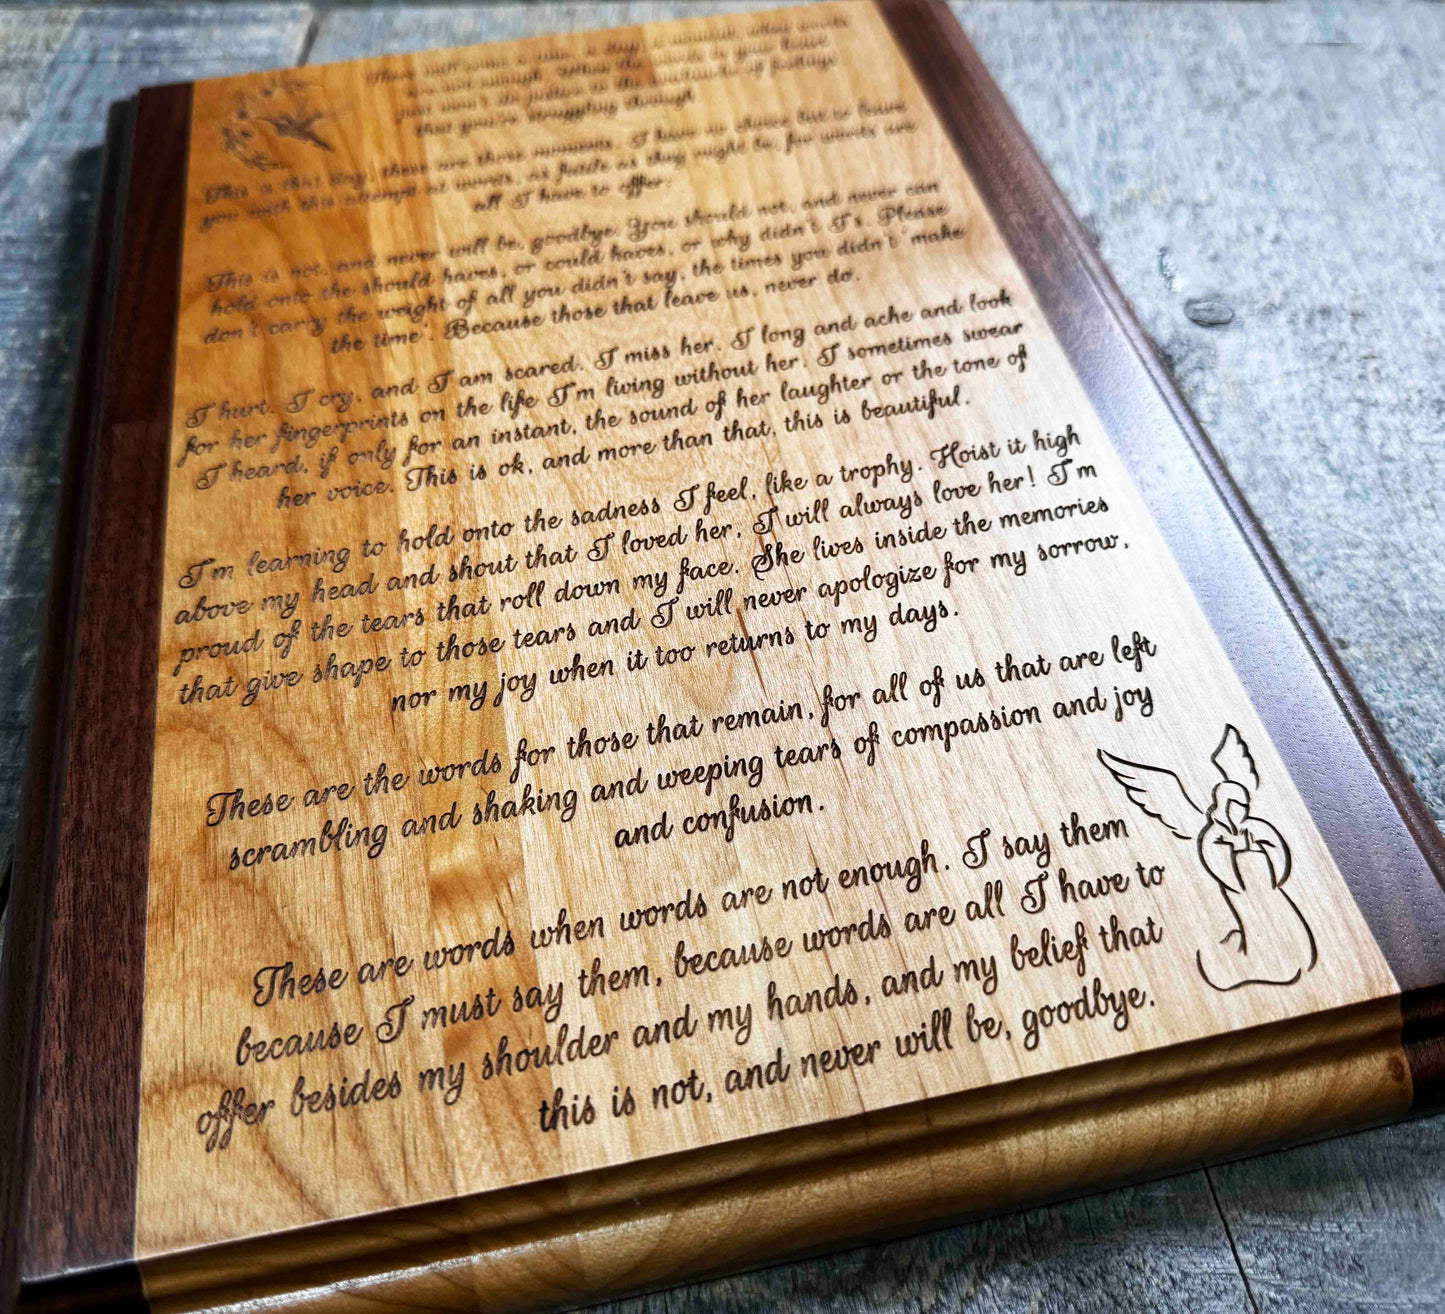 There will come a time, a day, a moment, when words
are not enough. When the words in your heart
just won't do justice to the multitude of feelings
that you're struggling through.
This is that day, these are those moments. I have no choice but to leave
you with this attempt at words, as futile as they might be, for words are
all I have to offer.
This is not, and never will be, goodbye. You should not, and never can
hold onto the should haves, or could haves, or why didn't I's. Please
don't carry the weight of all you didn't say, the times you didn't 'make
the time'. Because those that leave us, never do.
I hurt. I cry, and I am scared. I miss her. I long and ache and look
for her fingerprints on the life I'm living without her. I sometimes swear
I heard, if only for an instant, the sound of her laughter or the tone of
her voice. This is ok, and more than that, this is beautiful.
I'm learning to hold onto the sadness I feel, like a trophy. Hoist it high
above my head and shout that I loved her, I will always love her! I'm
proud of the tears that roll down my face. She lives inside the memories
that give shape to those tears and I will never apologize for my sorrow,
nor my joy when it too returns to my days.
These are the words for those that remain, for all of us that are left
scrambling and shaking and weeping tears of compassion and joy
and confusion.
These are words when words are not enough. I say them
because I must say them, because words are all I have to
offer besides my shoulder and my hands, and my belief that
this is not, and never will be, goodbye.